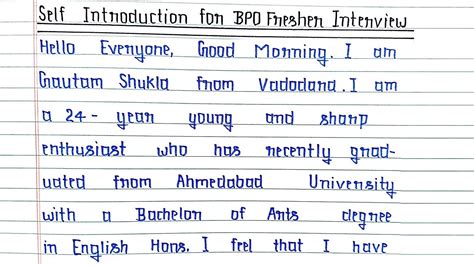 Self Introduction for BPO Fresher Interview
Hello Everyone, Good Morning. I am
Gautam Shukla from Vadodara. I am
a 24- year young and sharp
enthusiast who has recently grad-
uated from Ahmedabad University
with a Bachelor of Arts degree
in English Hons. I feel that I have